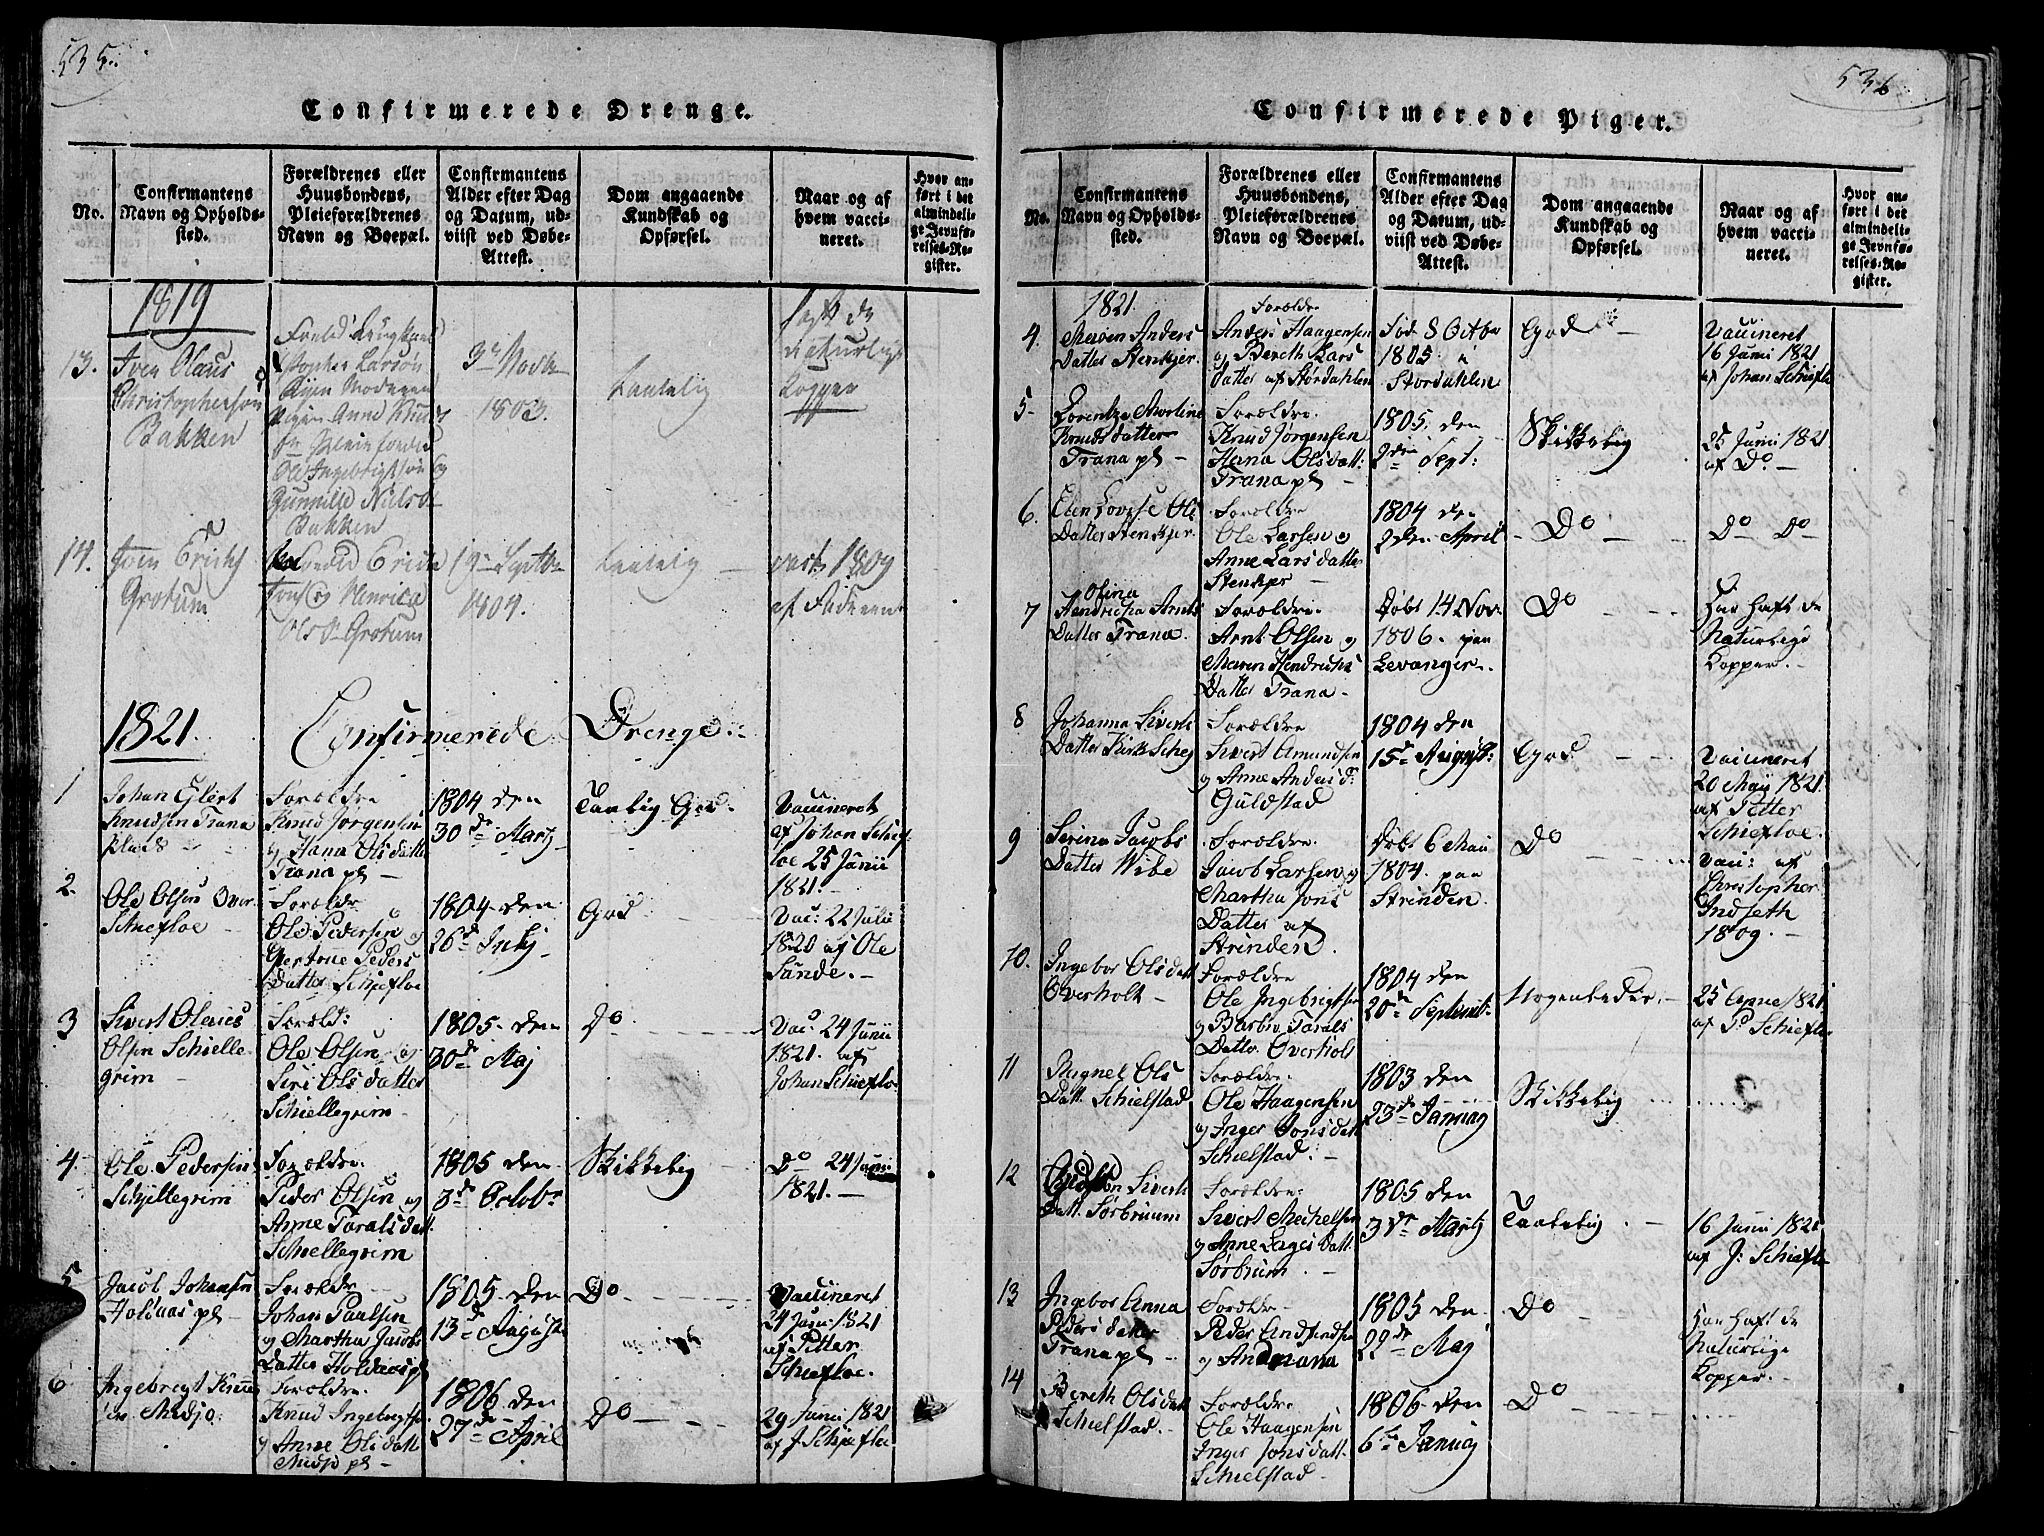 535.
Confirmerede Drenge.
No.
Confirmantens
Navn og Opholds-
sted.
Forældrenes eller
Huusbondens,
Pleieforældrenes
Navn og Boepæl.
Confirmantens
Alder efter Dag
og Datum, ud-
viist ved Døbe-
Attest.
Dom angaaende
Kundskab og
Opførsel.
Naar og af
hvem vacci-
neret.
Hvor an-
ført i det
almindeli-
ge Jevnfø-
relses-Re-
gister.
1819
13.
Iven Olaus
Christophersøn
Bakken
Larsøn
Anne
Ole Ingebrigtsøn
Gunnild Niels
Bakken
1803.
Taalelig
havt de
Naturlige
Kopper
14.
Grotum
Henrica
Ols Grotum
1804.
Taalelig
vact 1809
af
1821.
Confirmerede Drenge.
1
Johan Elert
Knudsen Trana
Plads
Forældre
Knud Jørgensen
og Hana Olsdatter
Trana pl
1804 den
30de Martz
Taalig God.
Vaccineret
af Johan Schief-
loe 25 Junii
1821.
2.
Ole Olsen Over
Schiefloe
Forældr
Ole Pedersen
Peders
Datter Schiefloe
1804 den
26d
God
Vac: 22 Julii
1820 af Ole
Sande.
3
Sivert Oleus
Olsen Schielle
grim
Foræld:
Ole Olsen og
Siri Olsdatter
Schiellegrim
1805. den
30de Maj
Do
Vac. 24 Junii
1821. af
Johan Schiefloe
4.
Ole Pedersen
Schiellegrim
Forældre.
Peder Olsen og
Anne Taralsdatt.
Schiellegrim
1805 den
3de Octobr
Skikkelig
Do 24 Juni
1821.
5
Jacob Johansen
Holaas pl
Forældre
Johan Paalsen
og Martha Jacobs
Datter
1805 den
13de August
Do
Vaccineret
24 Juni 1821
af Petter
Schiefloe.
6
Ingebregt Knud
sen Midjo.
Forældre.
Knud Ingebregtsen
og Anne Olsdatt
Midjo pl
1806 den
27de April
Do
29 Juni 1821
af J Schiefloe
536
Confirmerede Piger.
No.
Confirmantens
Navn og Opholds-
sted.
Forældrenes eller
Huusbondens,
Pleieforældrenes
Navn og Boepæl.
Confirmantens
Alder efter Dag
og Datum, ud-
viist ved Døbe-
Attest.
Dom angaaende
Kundskab og
Opførsel.
Naar og af
hvem vacci-
neret.
Hvor an-
ført i det
almindeli-
ge Jevnfø-
relses-Re-
gister.
1821.
4.
Maren Anders
Datter Stenkjer.
Forældre
Anders Haagensen
og Bereth Lars
Datter af Størdahlen
Fød 8 Octbr
1805. i
Størdahlen
God
Vaccineret
16 Junii 1821
af Johan Schiefloe
5.
Lorentze Martine
Knudsdatter
Trana pl
Forældre.
Knud Jørgensen
Hana Olsdatt:
Trana pl
1805. den
2den Sept:
Skikkelig
25 Juni 1821
af Do
6.
Elen Lovise Ole
Datter Stenkjer.
Forældre
Ole Larsen og
Anne Larsdatter
Stenkjer
1804 den
2den April
Do
Do Do
7
Olina
Hendricha Arnts
Datter Trana.
Forældre.
Arnt Olsen og
Maren Hendrichs
Datter Trana
Døbt 14 Nov.
1806. paa
Levanger.
Do
Har Haft de
Naturlige
Kopper.
8
Johanna Siverts
Datter Kirk
Forældre
Sivert Amundsen
og Anne Andersd:
Guldstad
1804 den
15de August:
God
Vaccineret
20 Maii 1821.
af Petter
Schiefloe.
9
Serina Jacobs
Datter Wibe
Forældre.
Jacob Larsen og
Martha Jons
Datter af
Strinden.
Døbt 6 Mai
1804. paa
Strinden.
Do
Vac: af
Christopher
Indseth
1809.
10.
Ingebor Olsdatt
Overholt
Forældre
Ole Ingebrigtsen
og Barbro Tarals
Datter Overholt
1804 den
20de Septemb:
Nogenledes.
25 1821
af P. Schiefloe
11
Ragnel Ols
Datt. Schielstad
Forældre.
Ole Haagensen
og Inger Jonsdatt
Schielstad.
1803 den
23de Januarj
Skikkelig
12
Siverts
Datt. Sørbruum
Forældre.
Sivert Mechelsen
og Anne Lages Datt.
Sørbrum.
1805 den
3de Martz
Taalelig.
16 Juni 1821
af J: Schiefloe
13
Ingebor Anna
Pedersdatter
Trana pl
Forældre
Peder
og
1805 den
22de Maj
Do
Har Haft de
Naturlige
Kopper.
14
Bereth Olsdatt
Schielstad.
Forældre
Ole Haagensen
Inger Jonsdatt.
Schielstad
1806. den
6te Januarj
Do